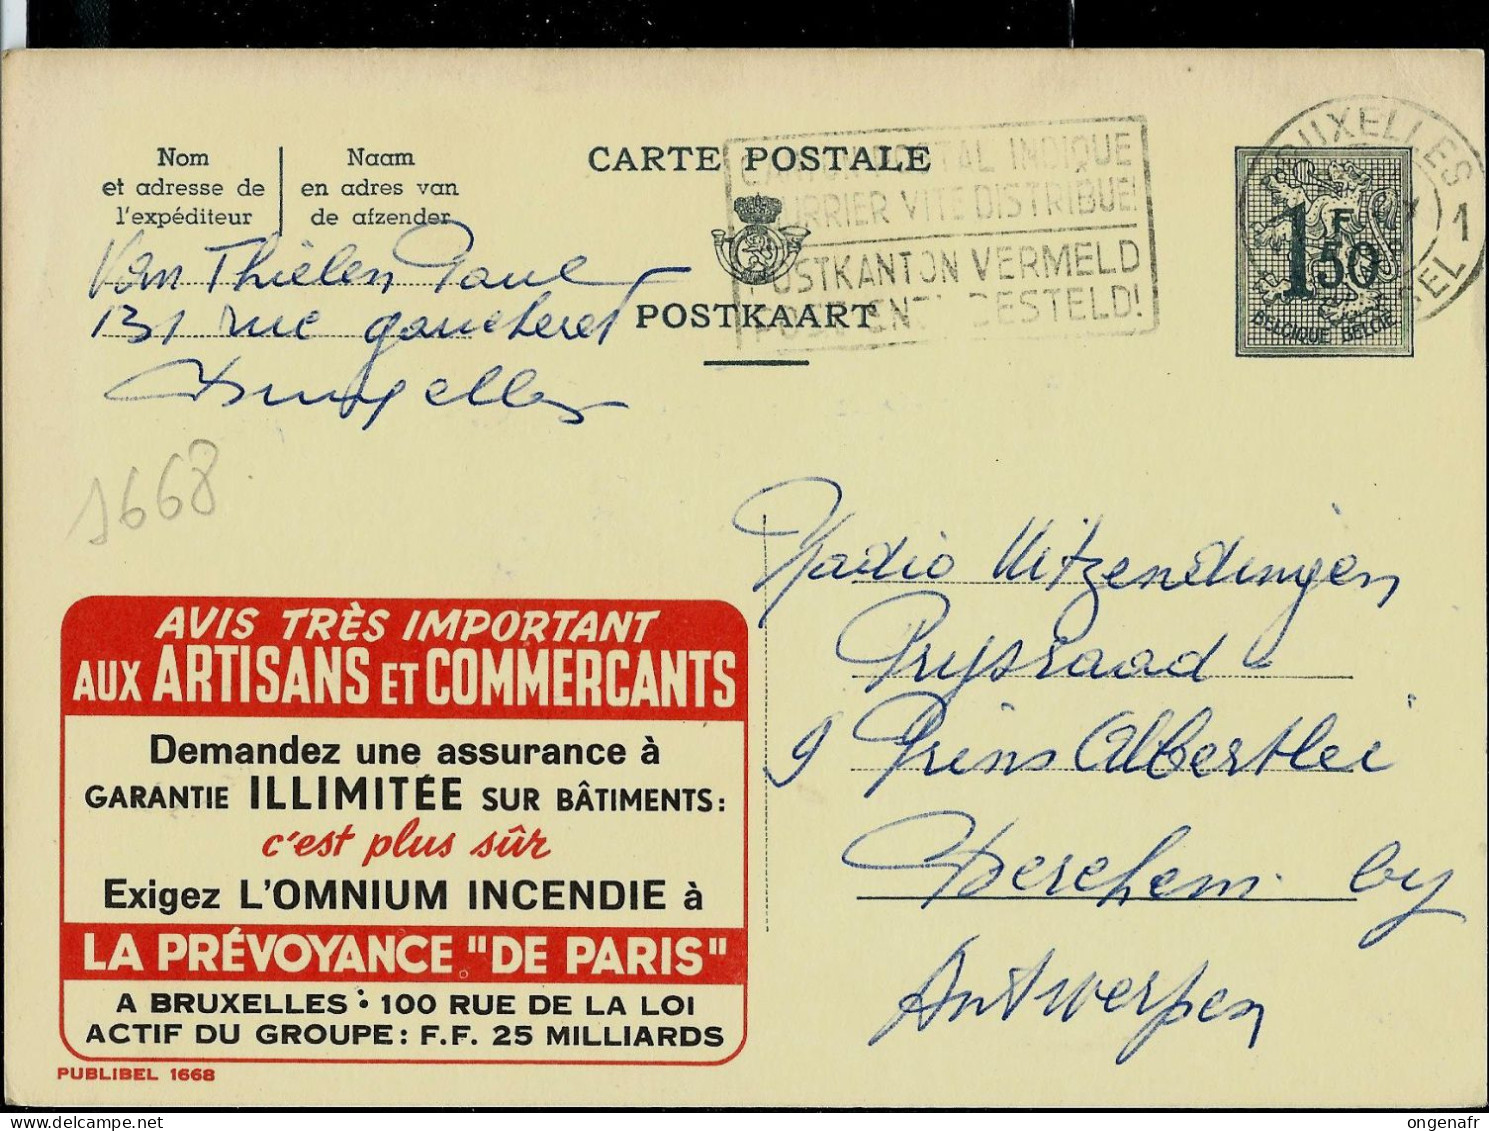 CARTE POSTALE
Nom
et adresse de
l'expéditeur
Naam
en adres van
de afzender
POSTAL INDIQUE
COURRIER VITE DISTRIBUE!
POSTKANTON VERMELD
BESTELD!
BRUXELLES
1
1F50
BELGIQUE BELGIË
Van Thielen Paul
131 rue gaucheret
Bruxelles
POSTKAART
1668
Radio Uitzendingen
Prijsraad
9 Prins Albertlei
Berchem by
Antwerpen
AVIS TRÈS IMPORTANT
AUX ARTISANS ET COMMERCANTS
Demandez une assurance à
GARANTIE ILLIMITÉE SUR BÂTIMENTS:
c'est plus sûr
Exigez L'OMNIUM INCENDIE à
LA PRÉVOYANCE "DE PARIS"
A BRUXELLES : 100 RUE DE LA LOI
ACTIF DU GROUPE: F.F. 25 MILLIARDS
PUBLIBEL 1668
ongenafr